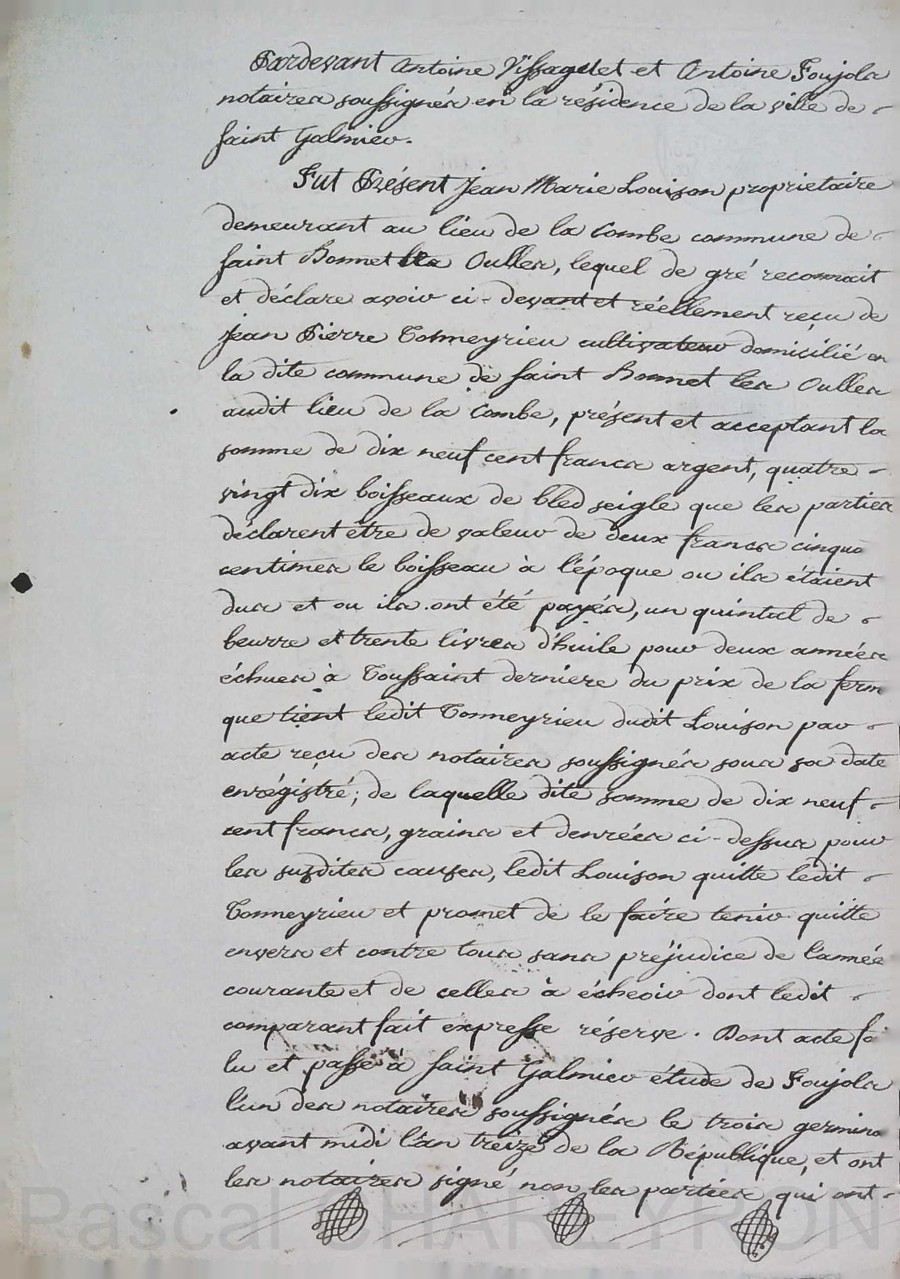 Pardevant Antoine Vissaguet et Antoine Foujols
notaires soussignés en la résidence de la ville de
saint Galmier.
Fut Présent Jean Marie Louison proprietaire
demeurant au lieu de la Combe commune de
saint Bonnet les Oulles, lequel de gré reconnait
et déclare avoir ci-devant et réellement reçu de
Jean Pierre Tonneyrieu cultivateur domicilié en
la dite commune de saint Bonnet les Oulles
audit lieu de la Combe, présent et acceptant la
somme de dix neuf cent francs argent, quatre
vingt dix boisseaux de bled seigle que les parties
déclarent etre de valeur de deux francs cinqua
centimes le boisseau à l'époque ou ils étaient
dus et ou ils ont été payés, un quintal de
beurre et trente livres d'huile pour deux années
échues à Toussaint derniere du prix de la ferm
que tient ledit Tonneyrieu dudit Louison par
acte reçu des notaires soussignés sous sa date
enrégistré; de laquelle dite somme de dix neuf
cent francs, grains et denrées ci-dessus pour
les susdites causes, ledit Louison quitte ledit
Tonneyrieu et promet de le faire tenir quitte
envers et contre tous sans préjudice de l'année
courante et de celles à écheoir dont ledit
comparant fait expresse réserve. Dont acte fa
lu et passé à saint Galmier étude de Foujols
l'un des notaires soussignés le trois germina
avant midi l'an treize de la République, et ont
les notaires signé non les parties qui ont
Pascal CHAREYRON